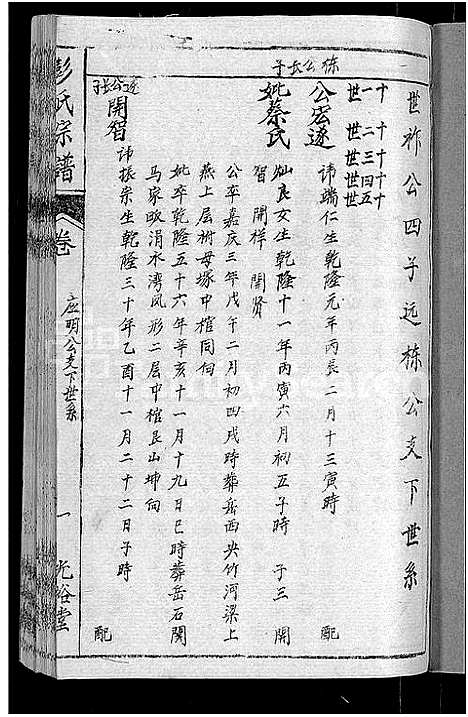 世祚公四子远栋公支下世系
十一世
十二世
十三世
十四世
十五世
栋公长子
公宏遂 讳瑞仁生乾隆元年丙辰二月十三寅時 配
妣蔡氏 灿良女生乾隆十一年丙寅六月初五子時 子三 開
智 開样 開贤
公卒嘉庆三年戊午二月初四戌時葬岳西央竹河梁上
燕上层树母塚中棺同向
妣卒乾隆五十六年辛亥十一月十九日巳時葬岳石関
马家畈涓水湾凤形二层中棺艮山坤向
遂公長
開智 讳振宗生乾隆三十年乙酉十一月二十二日子時 配
彭氏宗譜
卷
应明公支下世系
一
光裕堂